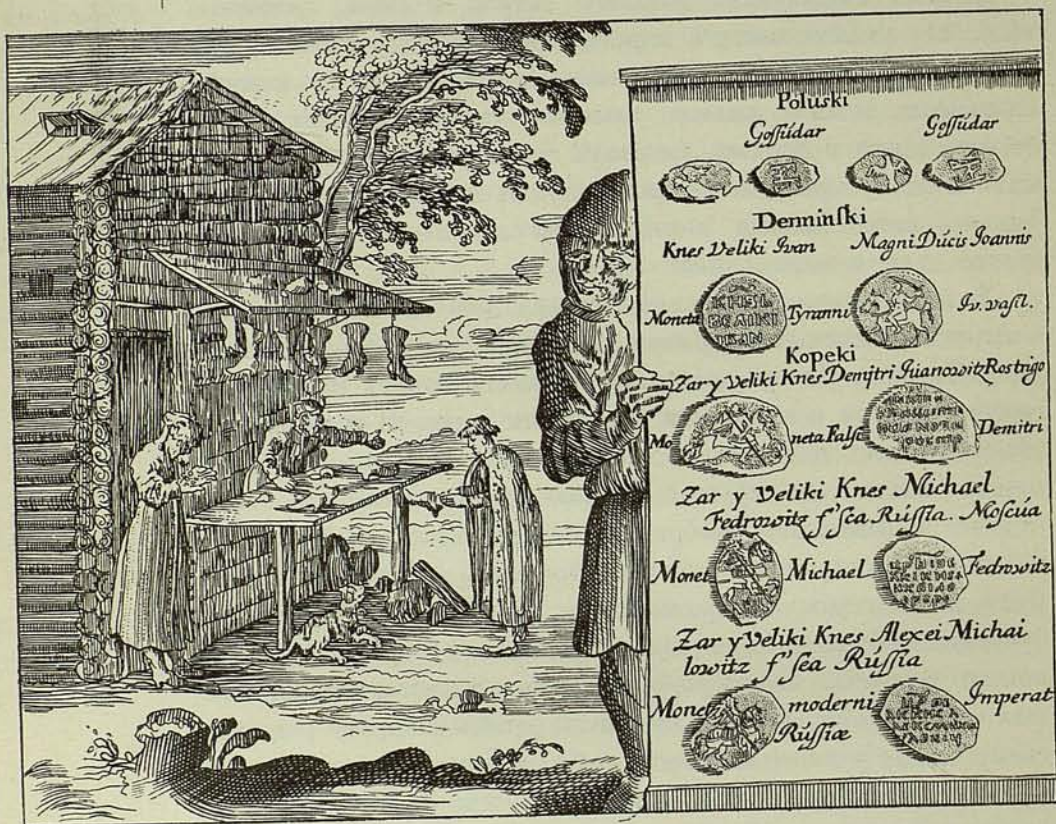 Poluski
Gossúdar Gossúdar
Denninski
Knes Veliki Ivan Magni Dúcis Joannis
Moneta КНЅЬ Tyranni Iv. vasil.
ВЕЛIКI
IВАN
Kopeki
Zar y Veliki Knes Demitri Juanowitz Rostrigo
Mo neta Falsa Demitri
Zar y Veliki Knes Michael
Fedrowitz f'sca Rússia. Moscúa
Monet Michael Fedrowitz
Zar y Veliki Knes Alexei Michai
lowitz f'sea Rússia
Monet moderni Imperat
Rússiæ